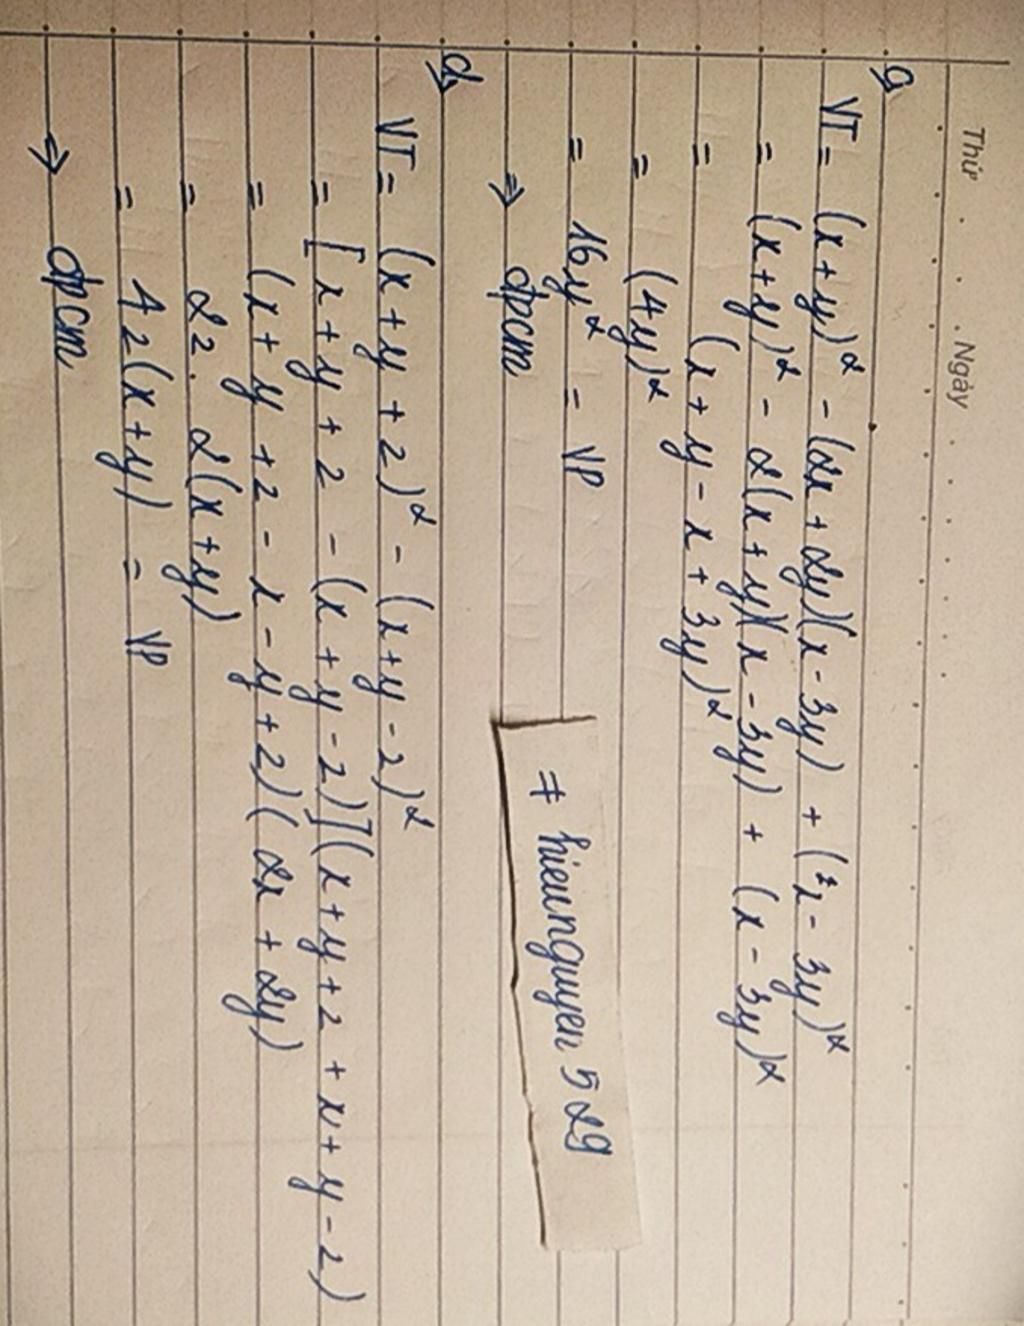 Thứ Ngày
c,
VT = (x + y)² - (2x + 2y)(x - 3y) + (x - 3y)²
= (x + y)² - 2(x + y)(x - 3y) + (x - 3y)²
= (x + y - x + 3y)²
= (4y)²
= 16y² = VP
⇒ đpcm
# hieunguyen 529
d,
VT = (x + y + z)² - (x + y - z)²
= [x + y + z - (x + y - z)](x + y + z + x + y - z)
= (x + y + z - x - y + z)(2x + 2y)
= 2z. 2(x + y)
= 4z(x + y) = VP
⇒ đpcm